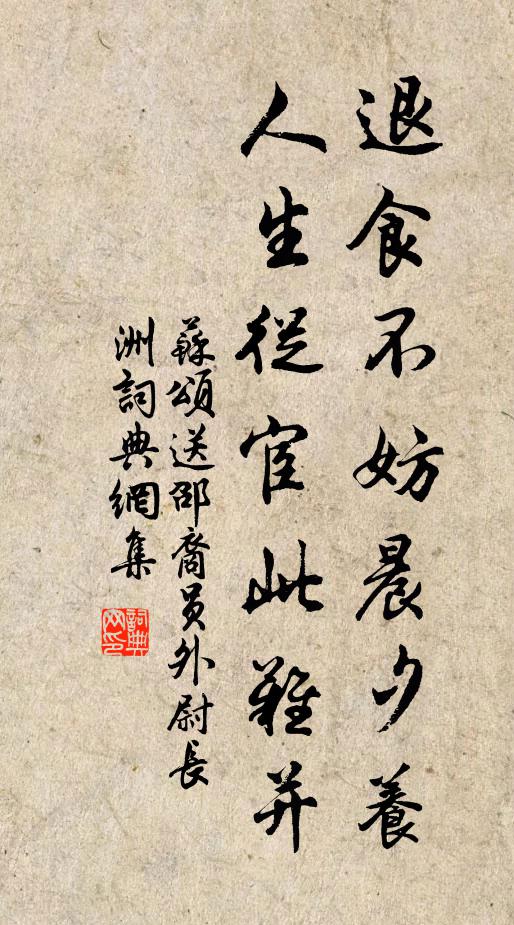 退食不妨晨夕養
人生從宦此難并
蘇頌送邵裔員外尉長
洲詞典網集
詞典网印